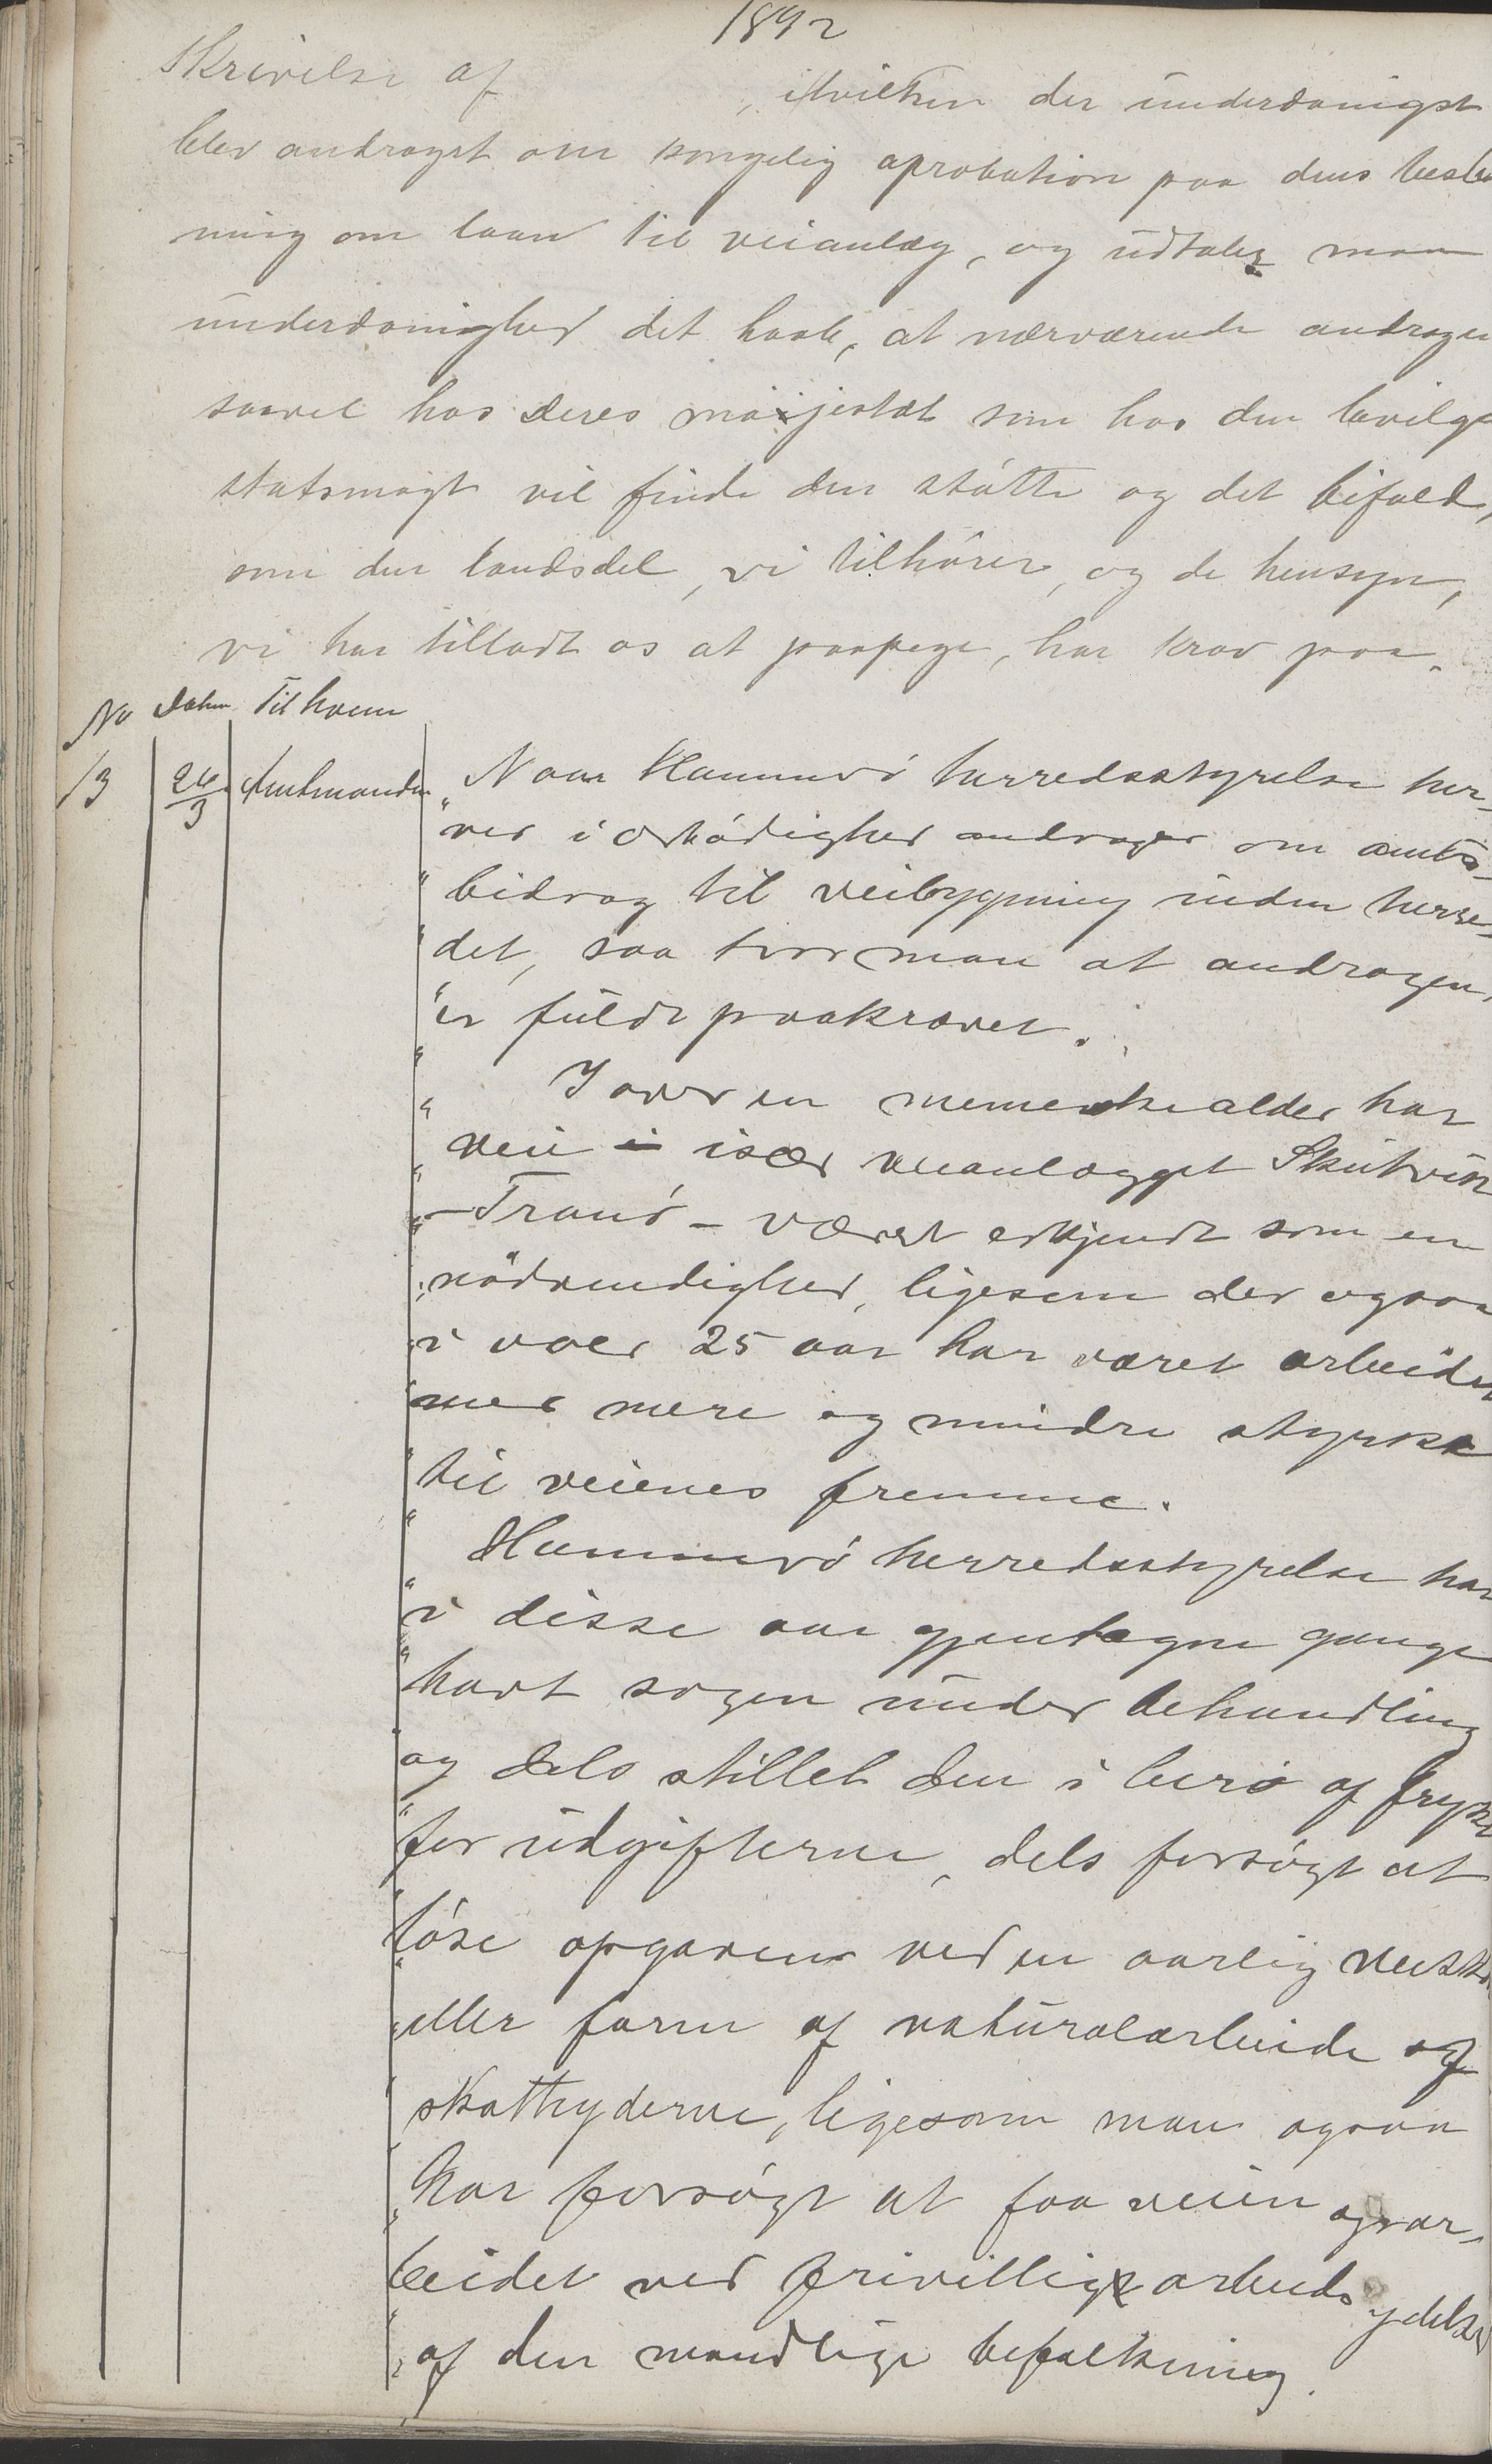 1892
Skrivelse af , i hvilken der underdanigst
blev andraget om kongelig aprobation paa dens beslu
ning om laan til veianlæg, og udtaler man
underdanighed det haab, at nærværende andragen
saavel hos Deres majestæt som hos den bevilge
statsmagt vil finde den støtte og det bifald,
om den landsdel, vi tilhører, og de hensyn,
vi har tilladt os at paapege, har krav paa.
No Datum Til hvem
13 24/3 Amtmanden Naar Hammerø herredsstyrelse her-
ved i ærbødighed andrager om amts-
bidrag til veibygning inden herre-
det, saa tror man at andragen.
er fuldt paakrævet.
I over en menneskealder har
vei i især veianlægget Skutvik
- Tranø - været erkjendt som en
nødvendighed, ligesom der ogsaa
i over 25 aar har været arbeidet
med mere og mindre styrke
til veienes fremme.
Hammerø herredsstyrelse har
i disse aar gjentagne gange
havt sagen under behandling
og dels stillet den i bero af frykt
for udgifterne, dels forsøgt at
løse opgaven ved en aarlig
eller form af naturalarbeide af
skatteyderne, ligesom man ogsaa
har forsøgt at faa veien opar-
beidet ved frivillig arbeidsydelse
af den mandlige befolkning.